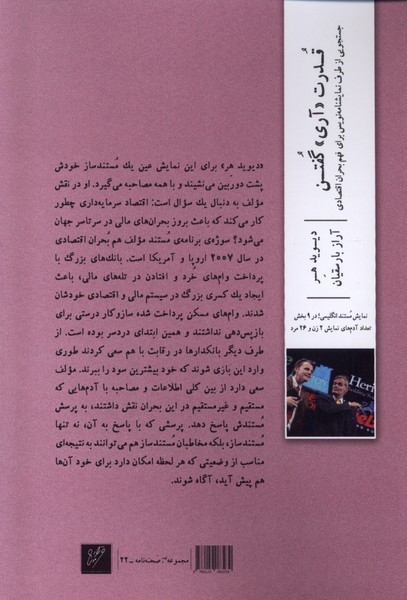 قُدرت «آری» گُفتن
جستجوی از طرف نمایشنامه‌نویس برای فهم بحران اقتصادی
دیوید هِر
آراز بارسقیان
نمایش مُستند انگلیسی؛ در ۹ بخش
تعداد آدم‌های نمایش ۲ زن و ۲۶ مرد
«دیوید هِر» برای این نمایش عین یك مُستندساز خودش
پشت دوربین می‌نشیند و با همه مصاحبه می‌گیرد. او در نقش
مؤلف به دنبال یك سؤال است: اقتصاد سرمایه‌داری چطور
کار می‌کند که باعث بروز بحران‌های مالی در سرتاسر جهان
می‌شود؟ سوژه‌ی برنامه‌ی مُستند مؤلف هم بُحران اقتصادی
در سال ۲۰۰۷ اروپا و آمریکا است. بانك‌های بزرگ با
پرداخت وام‌های خُرد و افتادن در تله‌های مالی، باعث
ایجاد یك کسری بزرگ در سیستم مالی و اقتصادی خودشان
شدند. وام‌های مسکن پرداخت شده سازوکار درستی برای
بازپس‌دهی نداشتند و همین ابتدای دردسر بوده است. از
طرف دیگر بانکدارها در رقابت با هم سعی کردند طوری
وارد این بازی شوند که خود بیشترین سود را ببرند. مؤلف
سعی دارد از بین کلی اطلاعات و مصاحبه با آدم‌هایی که
مستقیم و غیرمستقیم در این بحران نقش داشتند، به پرسش
مُستندش پاسخ دهد. پرسشی که با پاسخ به آن، نه تنها
مُستندساز، بلکه مخاطبان مُستندساز هم می‌توانند به نتیجه‌ای
مناسب از وضعیتی که هر لحظه امکان دارد برای خود آن‌ها
هم پیش آید، آگاه شوند.
Heri
مجموعه‌ی: صحنه‌نامه ـ ۲۲